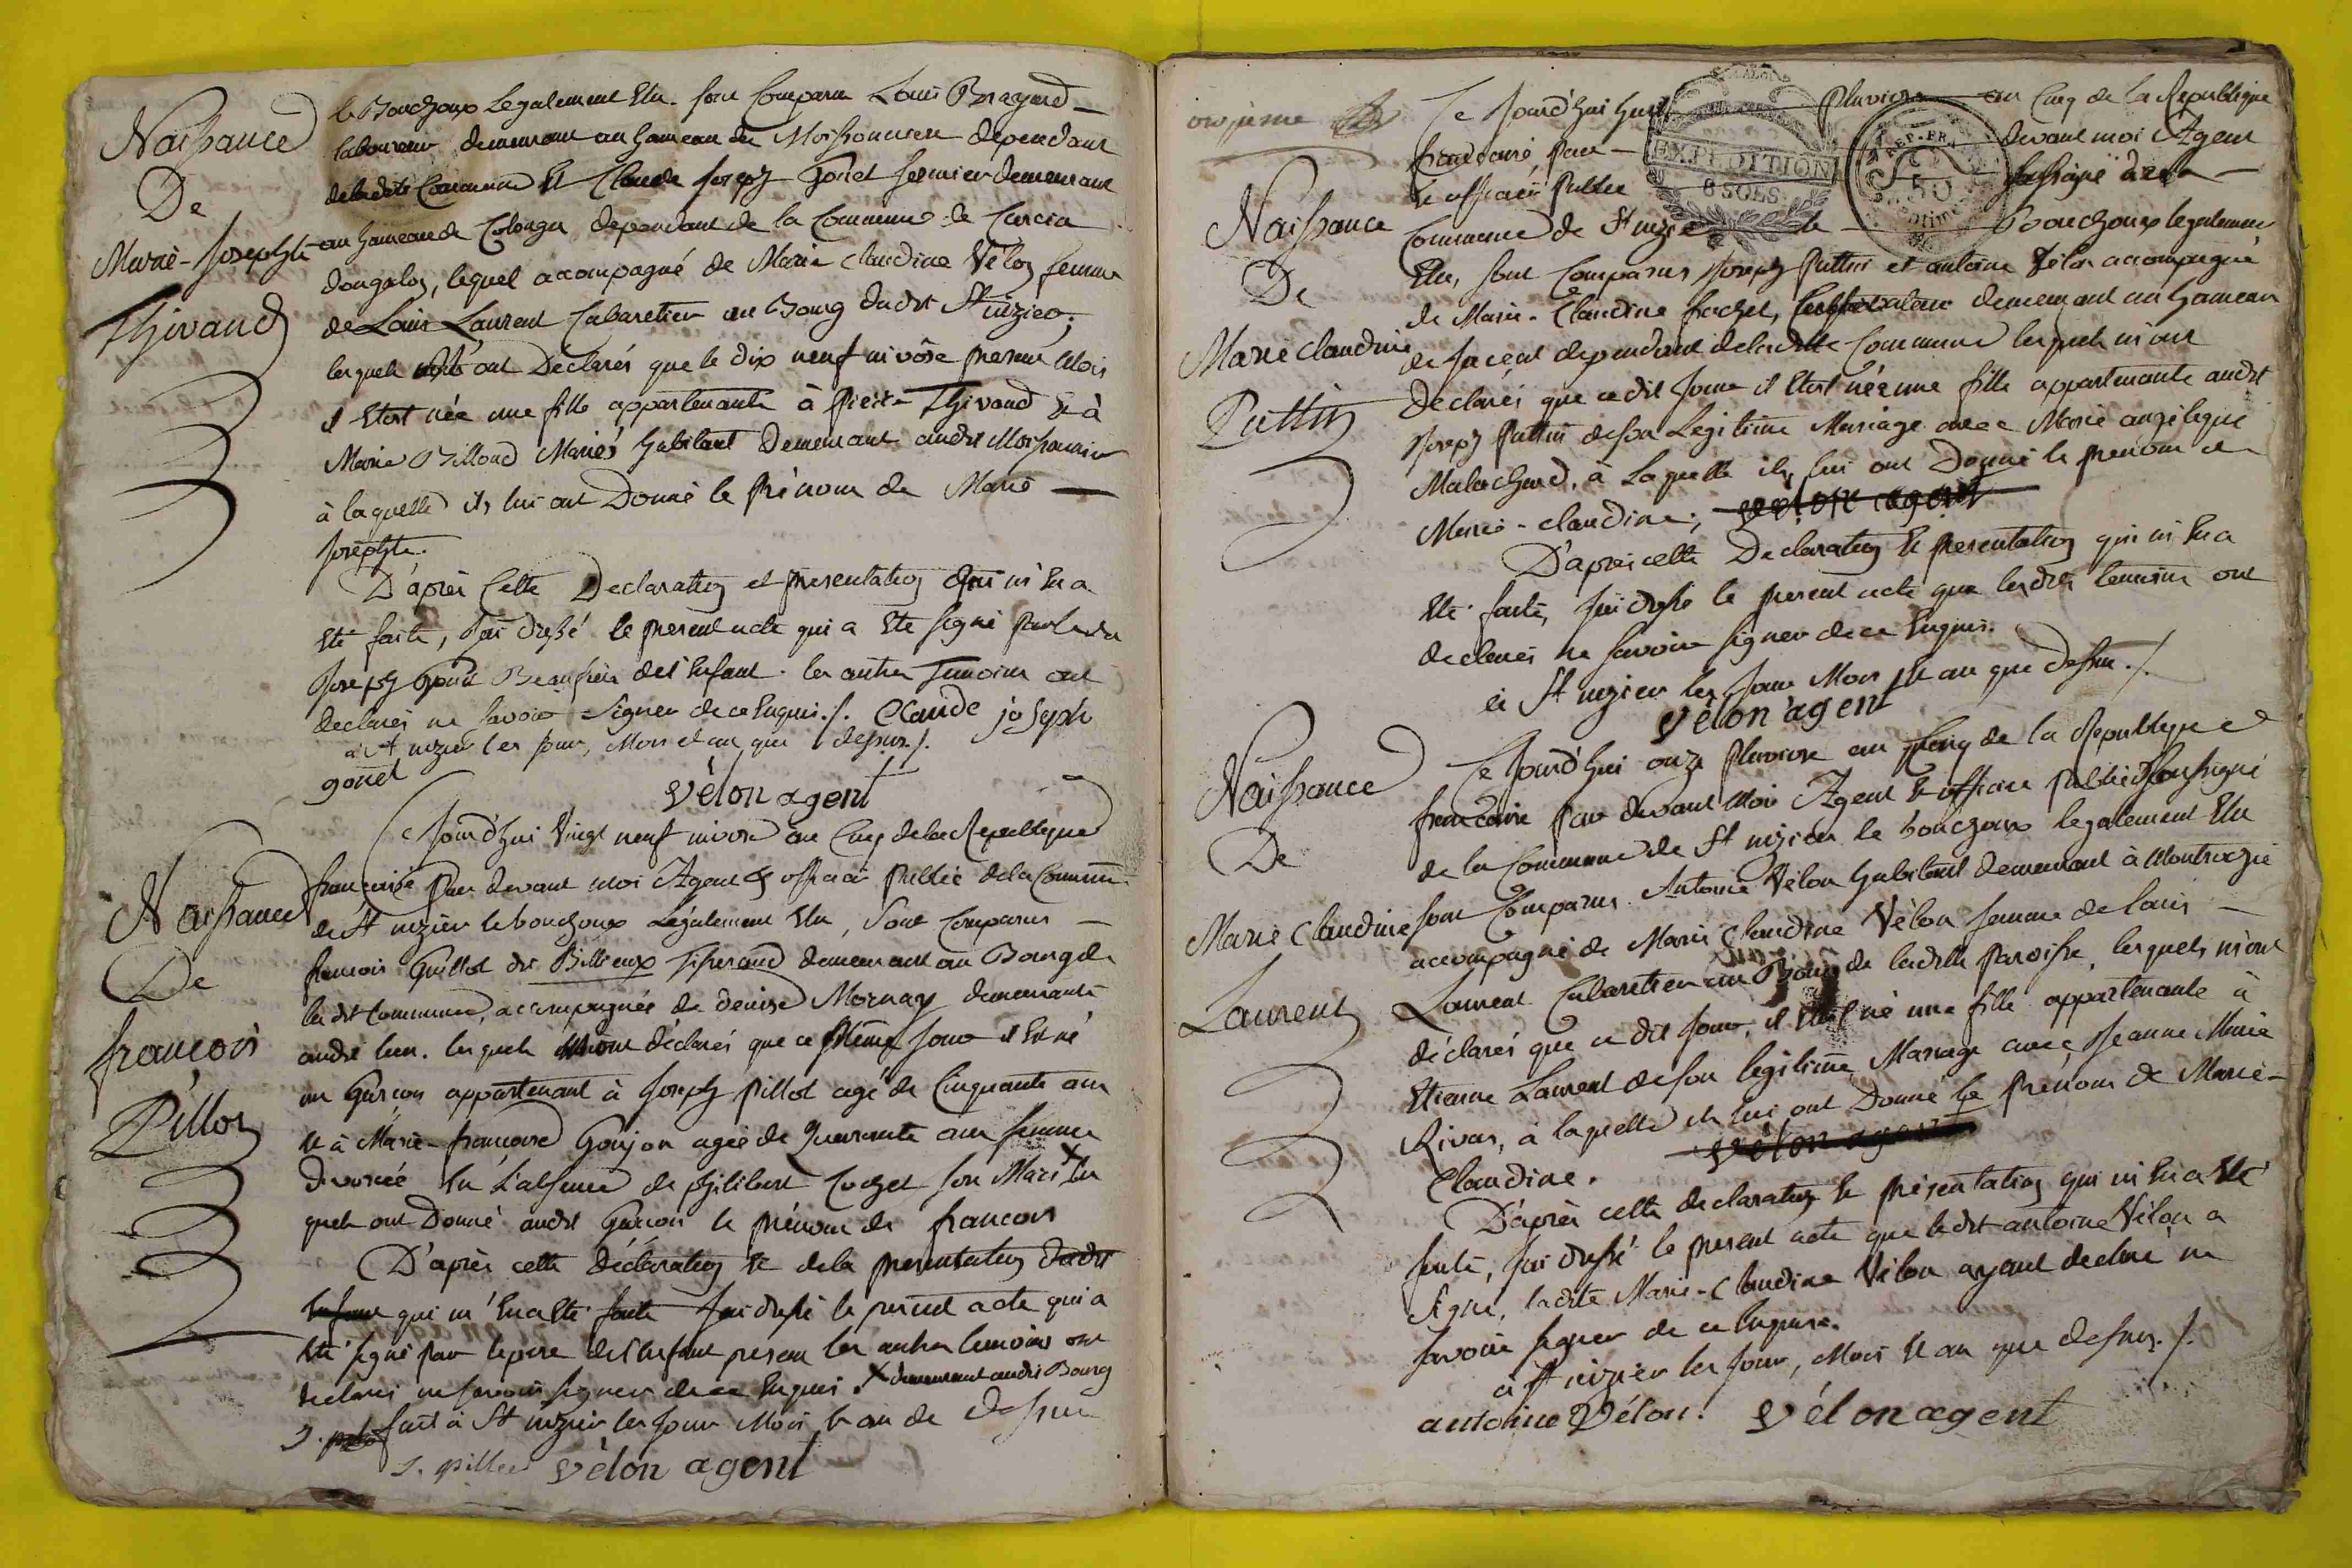 Naissance
De
Marie-Josephte
Thivaud
le Bouchoux legalement Elu. sont Comparu Louis Bragard
laboureur demeurant au hameau de Moissonnier dependant
de ladite Commune Et Claude Joseph Gonet fermier demeurant
au hameau de Colonges dependant de la Commune de Curcia
dongalon, lequel accompagné de Marie Claudine Vélon femme
de Louis Laurent Cabaretier au Bourg dudit St nizier,
lesquels ont Declarés que le dix neuf nivôse present Mois
il Etoit née une fille appartenante à Pierre Thivaud Et à
Marie Billoud Mariés habitant Demeurant audit Moissonnier
à laquelle ils lui ont Donné le Prénom de Marie
Josephte.
D'après Cette Declaration et presentation qui m'En a
Eté faite, J'ai dressé le present acte qui a Eté signé par ledit
Joseph Gonet Beaufrère de l'Enfant. les autres Temoins ont
declarés ne savoir Signer de ce Enquis./. Claude joseph
à St nizier les jour, Mois et an que dessus./.
gonet
vélon agent
Naissance
De
françois
Pillon
Ce Jourd'hui Vingt neuf nivose an Cinq de la Republique
française Par devant Moi Agent Et officier Public de la Commune
de St nizier le bouchoux Légalement Elu, Sont Comparus
francois Guillot dit Billieux Tisserand demeurant au Bourg de
ladit Commune, accompagnée de denise Mornay demeurante
audit lieu. lesquels m'ont déclarés que ce même jour il Est né
un Garcon appartenant à Joseph Pillot agé de Cinquante ans
Et à Marie-francoise Goujon agée de Quarante ans femme
divorcée En L'absence de Philibert Cochet son Mari X les
quels ont Donné audit Garcon le prénom de francois
D'après cette déclaration Et de la presentation dudit
Enfant qui m'En a Eté faite J'ai dressé le present acte qui a
Eté signé par le pere de l'Enfant present les autres temoins ont
declarés ne savoir signer de ce Enquis. X demeurant audit Bourg
fait à St nizier les Jour Mois Et an de dessus
J. pillot vélon agent
onzieme
Naissance
De
Marie Claudine
Puttin
Ce Jourd'hui huit Pluviose an Cinq de la Republique
francaise, Par devant moi Agent
Et officier Public soussigné de la
EXPEDITION
6 SOLS
REP. FRA
50
Commune de St nizier le Bouchoux legalement
Elu, sont Comparus Joseph Puttin et antoine Vélon accompagné
de Marie-Claudine frachet, demeurant au hameau
de dependant de ladite Commune lesquels m'ont
Declarés que cedit Jour il Etoit née une fille appartenante audit
Joseph Puttin de son Legitime Mariage avec Marie angelique
Malachard, à Laquelle ils lui ont Donné le prenom de
Marie-claudine; vélon agent
D'après cette Declaration Et presentation qui m'En a
Eté faite, J'ai dressé le present acte que lesdits temoins ont
declarés ne savoir signer de ce Enquis.
à St nizier les Jour Mois Et an que dessus./.
vélon agent
Naissance
De
Marie Claudine
Laurent
Ce Jourd'hui onze Pluviose an Cinq de la Republique
francaise Par devant Moi Agent Et officier Public Soussigné
de la Commune de St nizier le bouchoux legalement Elu
sont Comparus Antoine Vélon habitant demeurant à
accompagné de Marie Claudine Vélon femme de Louis
Laurent Cabaretier au Bourg de ladite Paroisse, lesquels m'ont
déclarés que cedit Jour, il Etoit né une fille appartenante à
Etienne Laurent de son legitime Mariage avec Jeanne Marie
Rivon, à laquelle ils lui ont Donné le Prénom de Marie-
Claudine. vélon agent
D'après cette declaration Et présentation qui m'En a Eté
faite, J'ai dressé le present acte que ledit antoine Vélon a
signé, ladite Marie-Claudine Vélon ayant declaré ne
savoir signer de ce Enquise.
à St nizier les Jour, Mois Et an que dessus./.
antoine Vélon. vélon agent